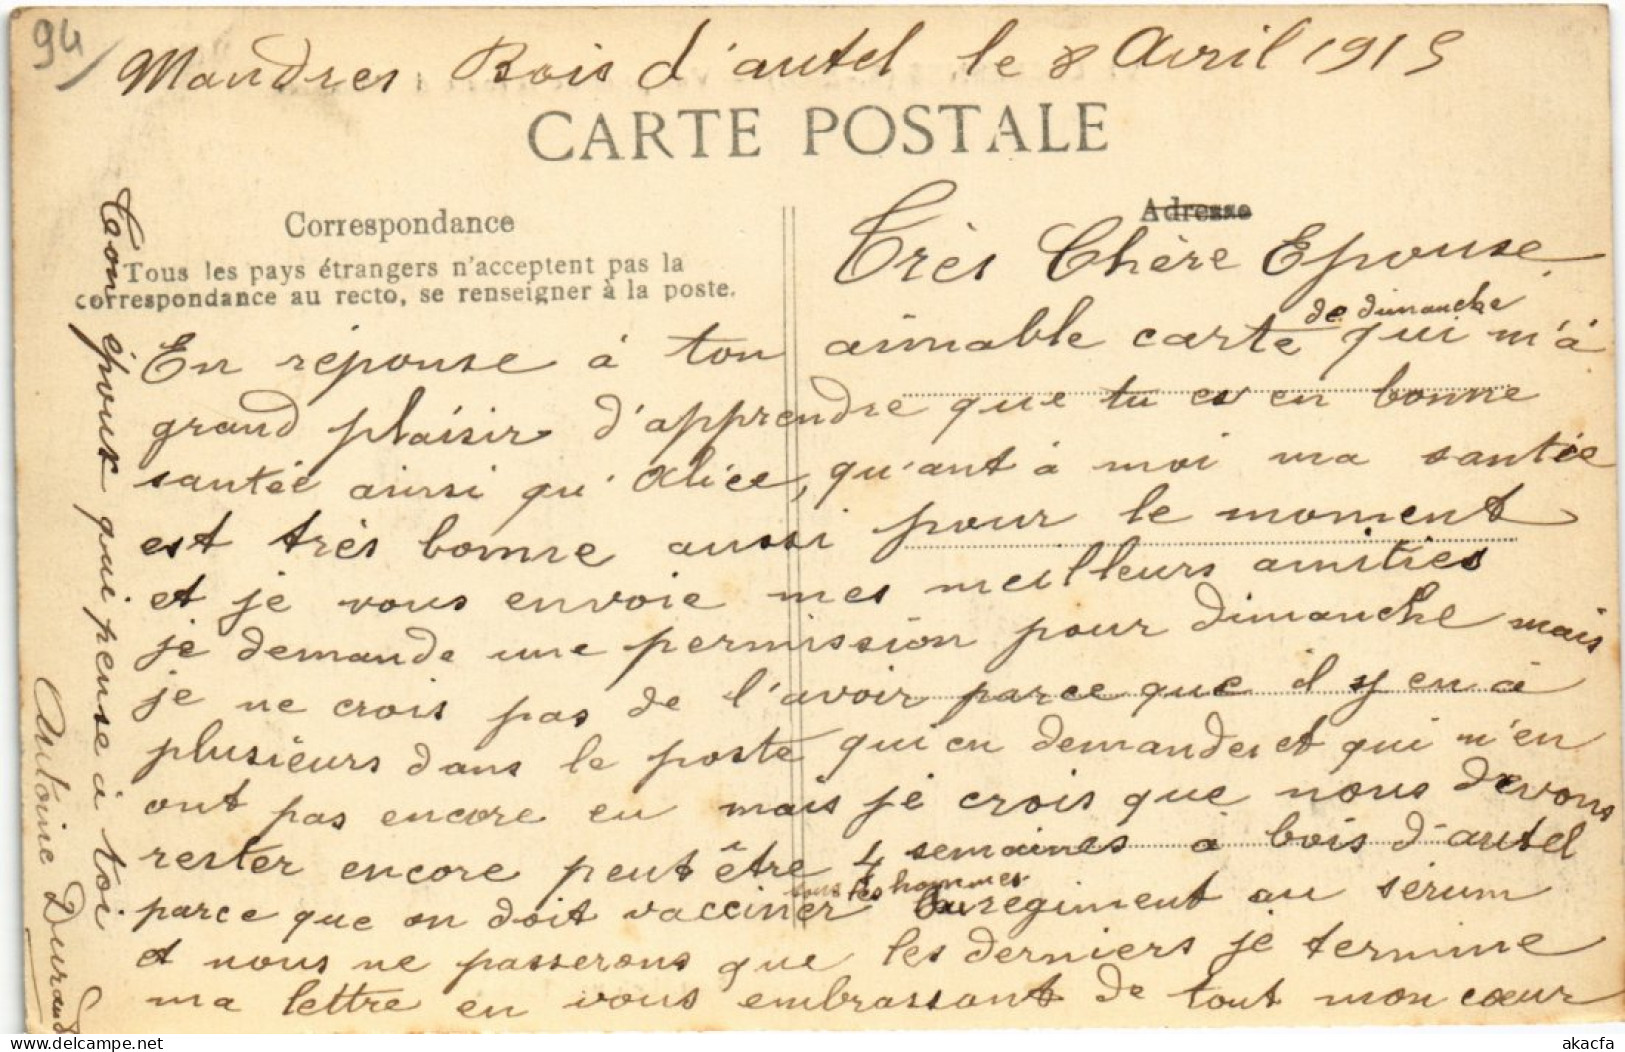 94
Mandres Bois d'autel le 8 Avril 1915
CARTE POSTALE
Correspondance
Tous les pays étrangers n'acceptent pas la
correspondance au recto, se renseigner à la poste.
Adresse
Très Chère Epouse
En réponse à ton aimable carte de dimanche qui m'à
grand plaisir d'apprendre que tu es en bonne
santée ainsi qu'Alice, qu'ant à moi ma santée
est très bonne aussi pour le moment
et je vous envoie mes meilleurs amitiés
je demande une permission pour dimanche mais
je ne crois pas de l'avoir parce que il y en à
plusieurs dans le poste qui en demandes et qui n'en
ont pas encore eu mais je crois que nous devons
rester encore peut être 4 semaines à bois d'autel
parce que on doit vacciner tous les hommes du regiment au sérum
et nous ne passerons que les derniers je termine
ma lettre en vous embrassant de tout mon cœur
Ton époux qui pense à toi
Antoine Durand
akacfa
akacfa